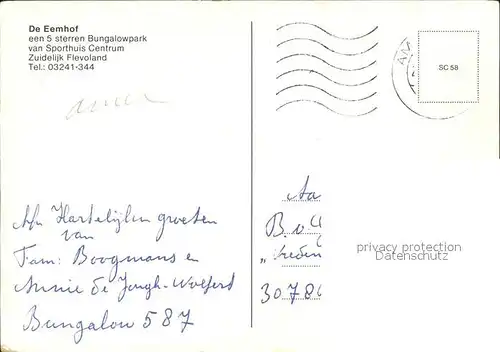 De Eemhof
een 5 sterren Bungalowpark
van Sporthuis Centrum
Zuidelijk Flevoland
Tel.: 03241-344
SC 58
Hartelijke groeten
van
Fam: Boogmans en
Annie de Jongh-Wolfert
Bungalow 587
Aa
B. v
privacy protection
Datenschutz
3078